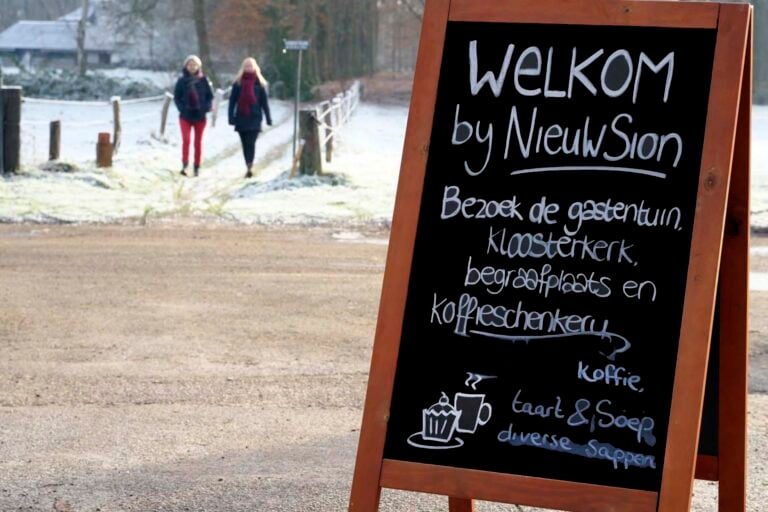 WELKOM
by NIEUW SION
Bezoek de gastentuin,
Kloosterkerk,
begraafplaats en
Koffieschenkerij
koffie,
taart & Soep
diverse sappen